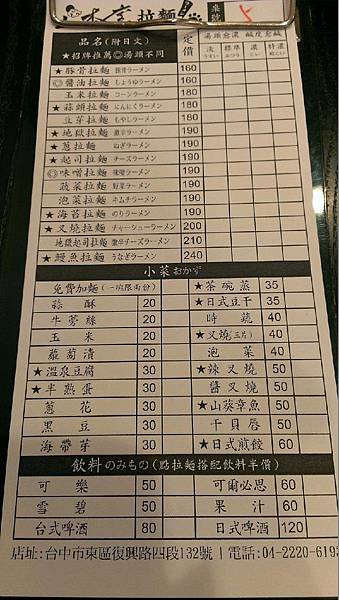 拉麵
桌號 5
品名(附日文) 定價 湯頭愈濃 鹹度愈鹹
★招牌推薦◎湯頭不同 淡 標準 濃 特濃
★豚骨拉麵 豚骨ラーメン 160
◎醬油拉麵 しょうゆラーメン 160
玉米拉麵 コーンラーメン 180
★蒜頭拉麵 にんにくラーメン 180
豆芽拉麵 もやしラーメン 180
★地獄拉麵 激辛ラーメン 190
★蔥拉麵 ねぎラーメン 190
★起司拉麵 チーズラーメン 190
◎味噌拉麵 味噌ラーメン 190
蔬菜拉麵 野菜ラーメン 190
泡菜拉麵 キムチラーメン 190
★海苔拉麵 のりラーメン 190
★叉燒拉麵 チャーシューラーメン 200
地獄起司拉麵 激辛チーズラーメン 210
★鰻魚拉麵 うなぎラーメン 240
小菜 おかず
免費加麵(一碗限兩份) ★茶碗蒸 35
蒜酥 20 ★日式豆干 35
牛蒡絲 20 時蔬 40
玉米 20 ★叉燒(三片) 40
蘿蔔漬 20 泡菜 40
★溫泉豆腐 30 ★辣叉燒 50
★半熟蛋 30 醬叉燒 50
蔥花 30 ★山葵章魚 50
黑豆 30 干貝唇 50
海帶芽 30 ★日式煎餃 60
飲料 のみもの (點拉麵搭配飲料半價)
可樂 50 可爾必思 60
雪碧 50 果汁 60
台式啤酒 80 日式啤酒 120
店址:台中市東區復興路四段132號 | 電話:04-2220-619